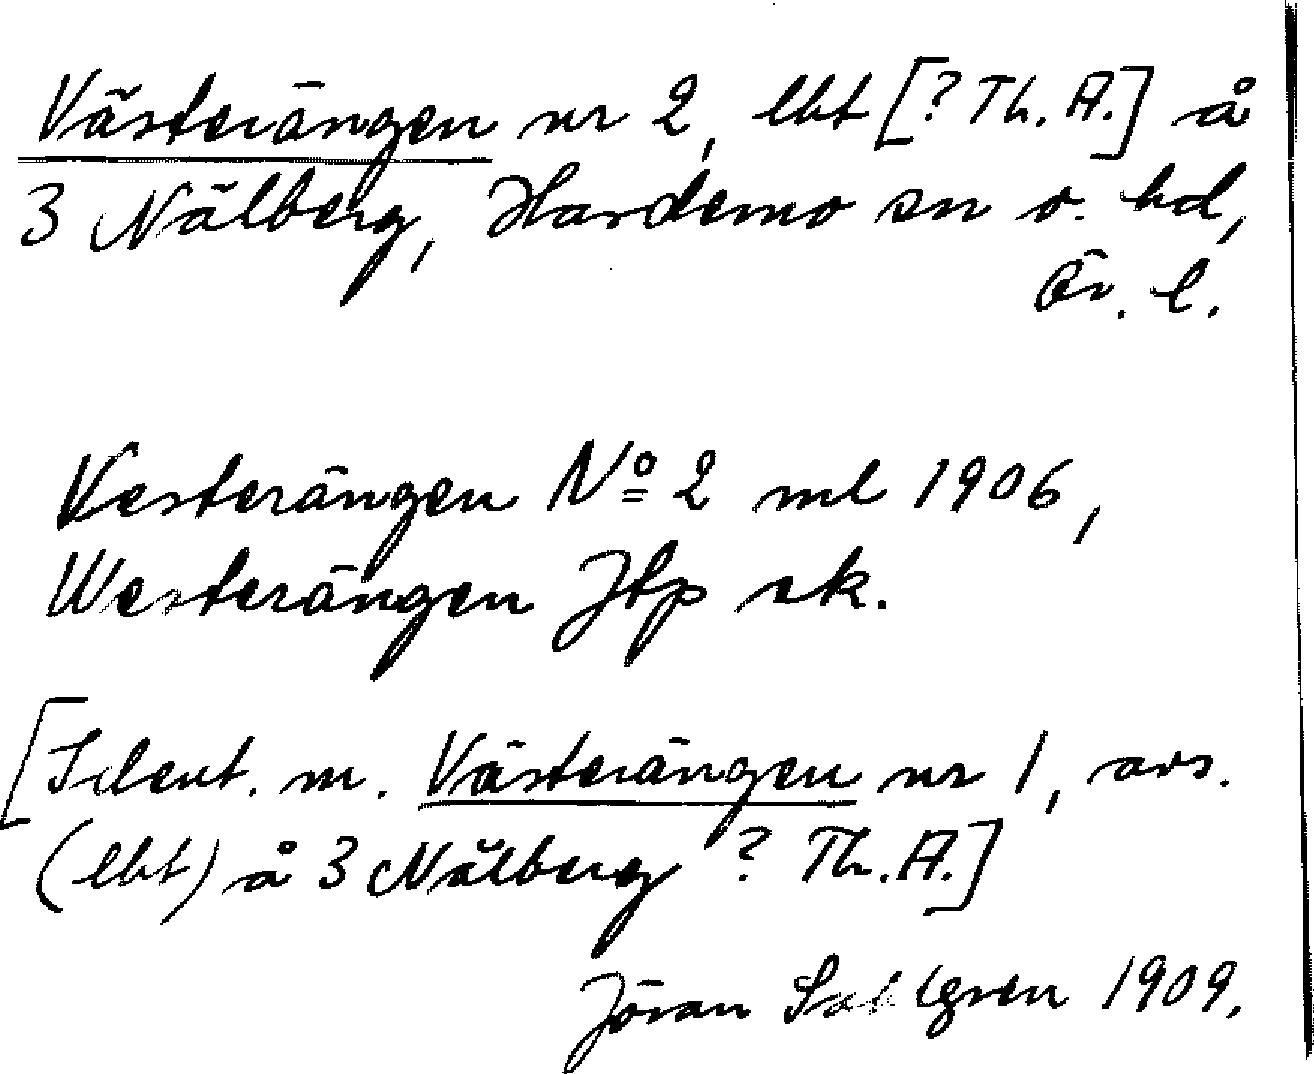 Västerängen nr 2, lht [? Th. A.] å
3 Nälberg, Hardemo sn o. hd,
Ör. l.
Vesterängen No 2 ml 1906,
Westerängen Jfp sk.
[Ident. m. Västerängen nr 1, avs.
(lht) å 3 Nälberg ? Th. A.]
Jöran Sahlgren 1909.